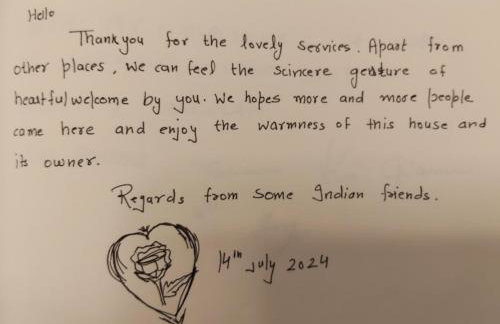 Hello
Thank you for the lovely services. Apart from
other places, we can feel the scincere gesture of
heartful welcome by you. We hopes more and more people
came here and enjoy the warmness of this house and
its owner.
Regards from some Indian friends.
14th July 2024